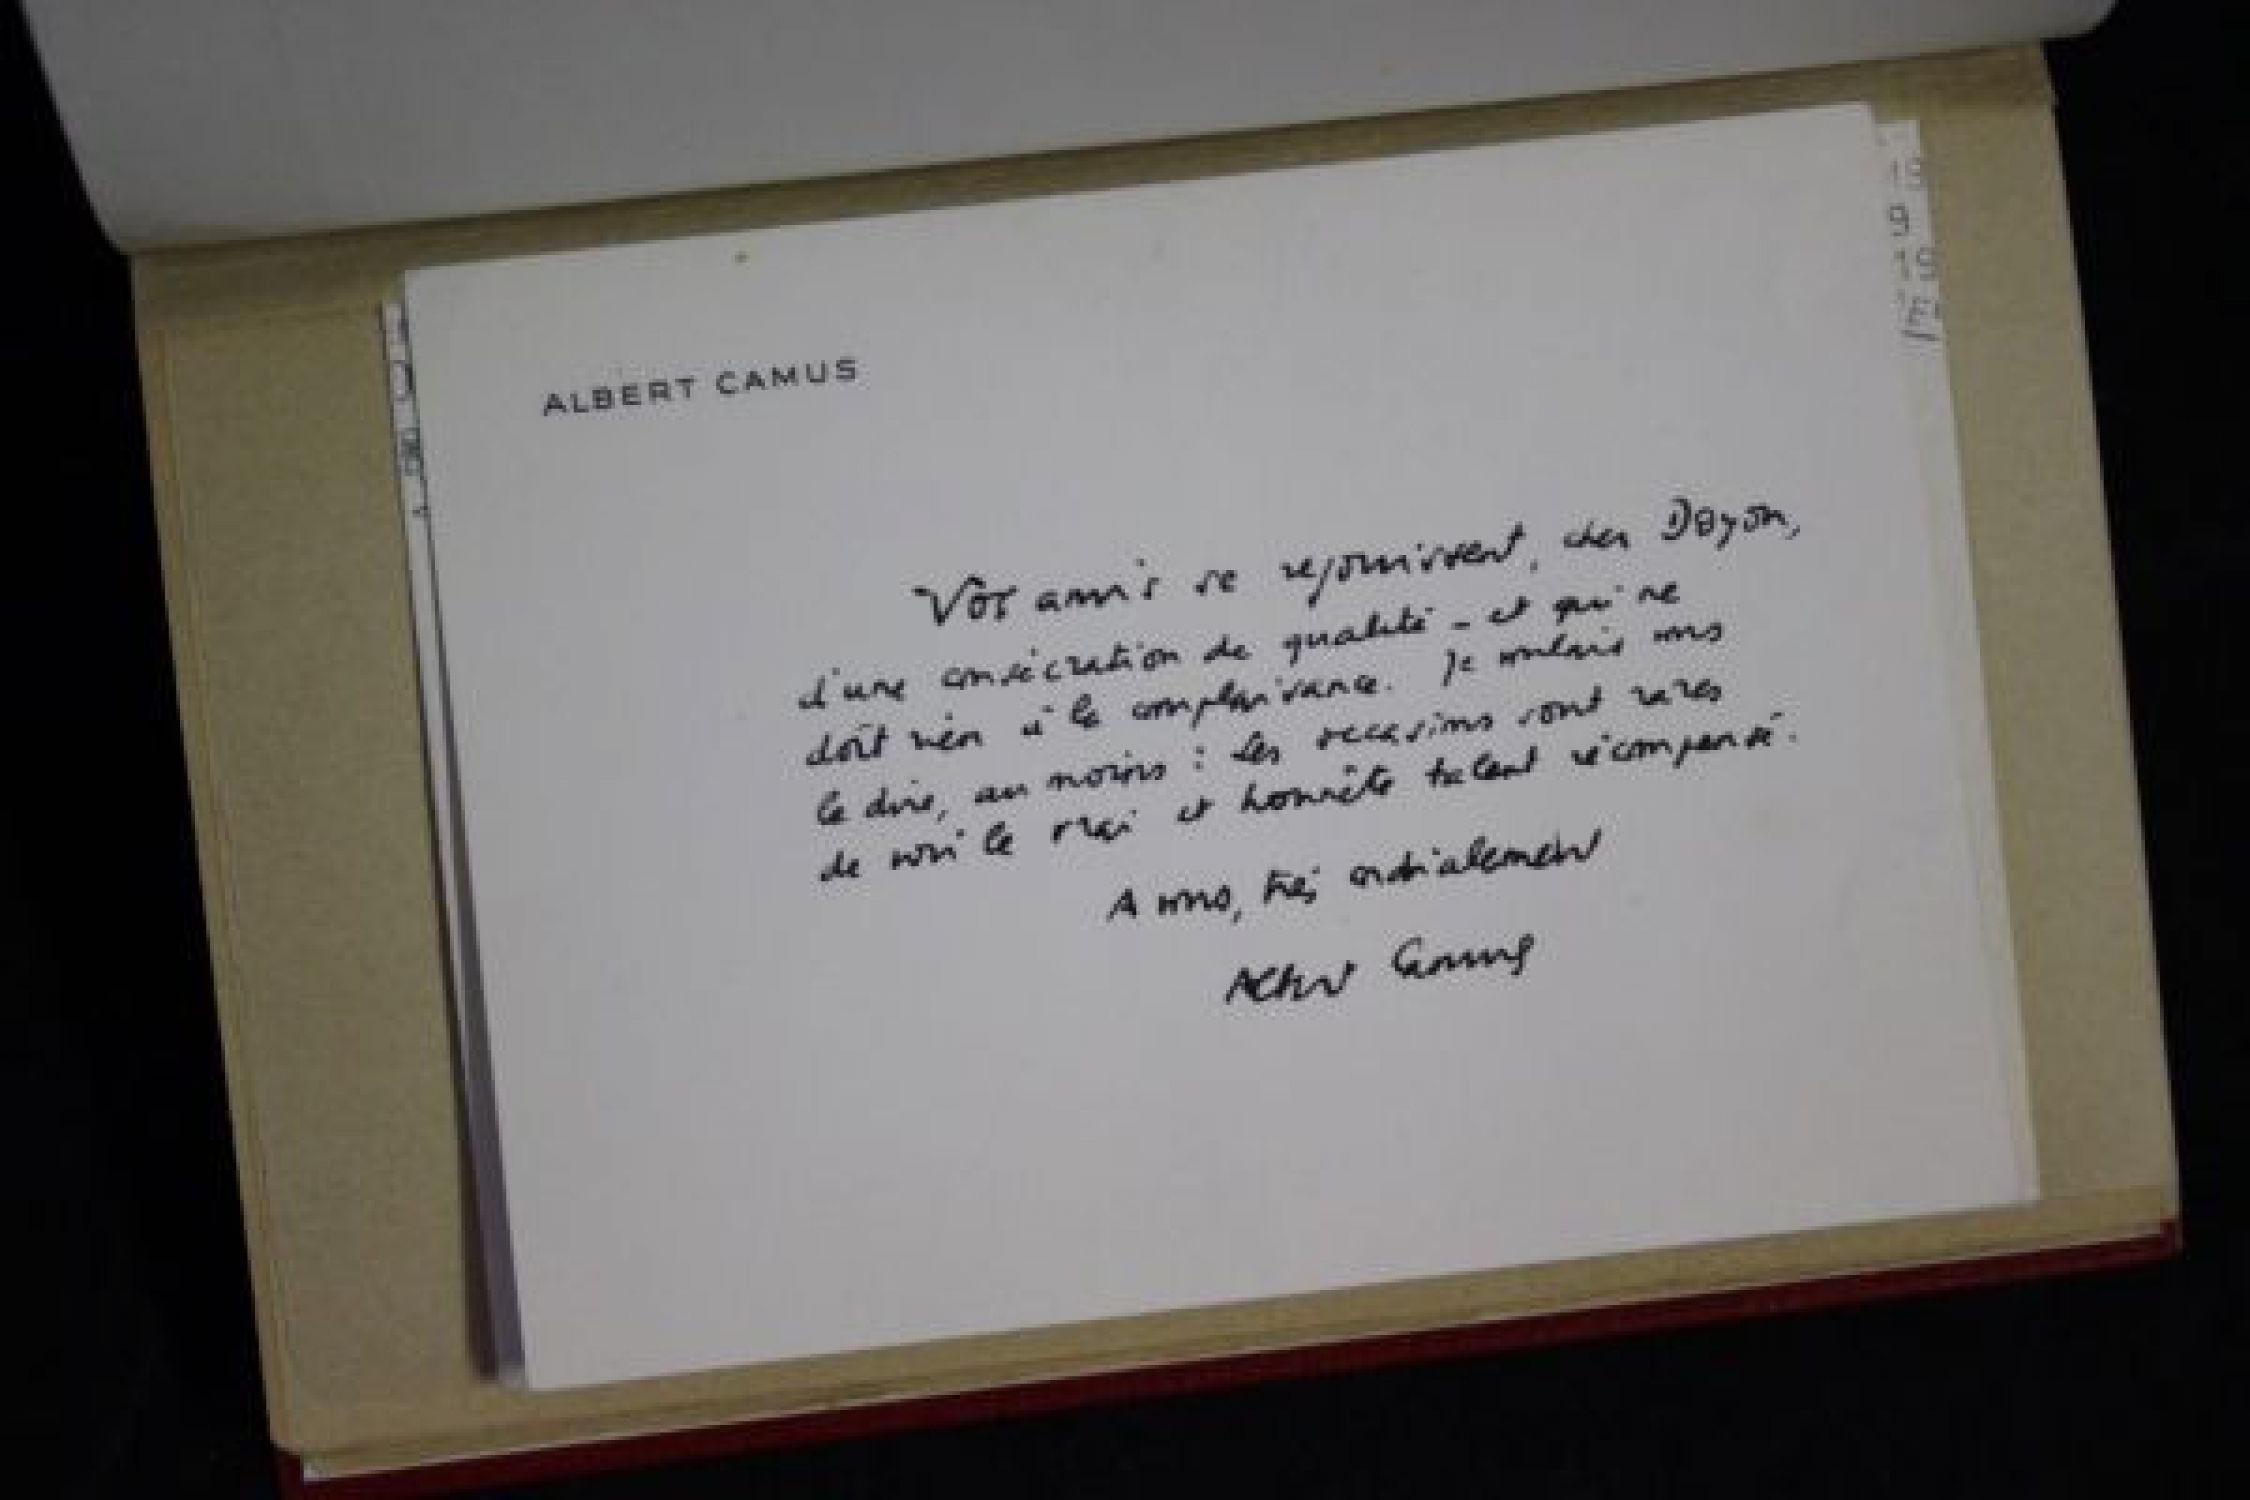 ALBERT CAMUS
Vos amis se rejouissent, cher Dayan,
d'une consécration de qualité - et qui ne
doit rien à la complaisance. Je voulais vous
le dire, au moins : les occasions sont rares
de voir le vrai et honnête talent récompensé.
A vous, très cordialement
Albert Camus